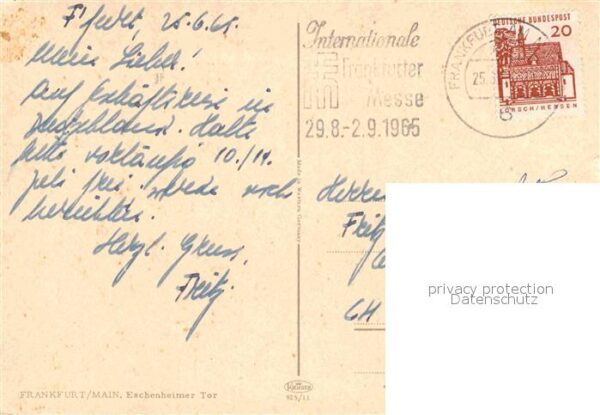 F'furt, 25.6.65.
Mein Lieber!
Auf Geschäftsreise in
Halte
bitte vorläufig 10./11.
Juli frei werde noch
berichten.
Herzl. Gruss,
Fritz
Internationale
Frankfurter
Messe
29.8.-2.9.1965
FRANKFURT AM
25.
DEUTSCHE BUNDESPOST
20
LORSCH/HESSEN
Herrn
Fritz
CH
Made in Western Germany
privacy protection
Datenschutz
FRANKFURT/MAIN, Eschenheimer Tor
925/11